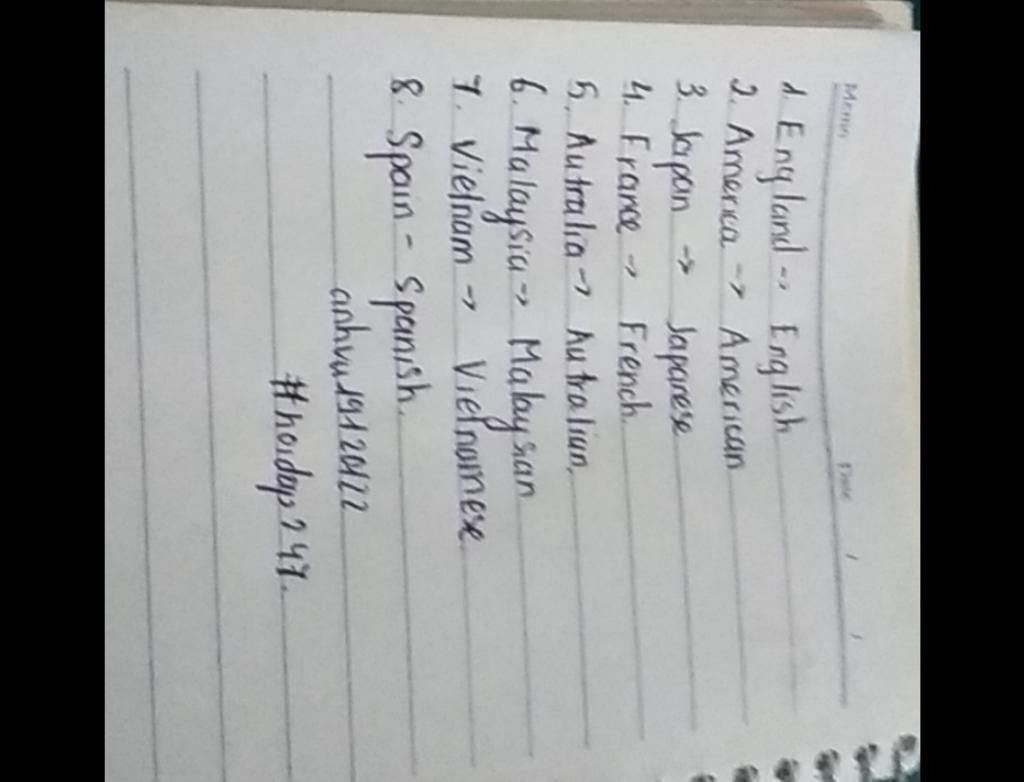 Memo
Date / /
1. England -> English
2. America -> American
3. Japan -> Japanese
4. France -> French
5. Autralia -> Autralian.
6. Malaysia -> Malaysian
7. Vietnam -> Vietnamese
8. Spain - Spanish.
anhvu19120122
#hoidap247.